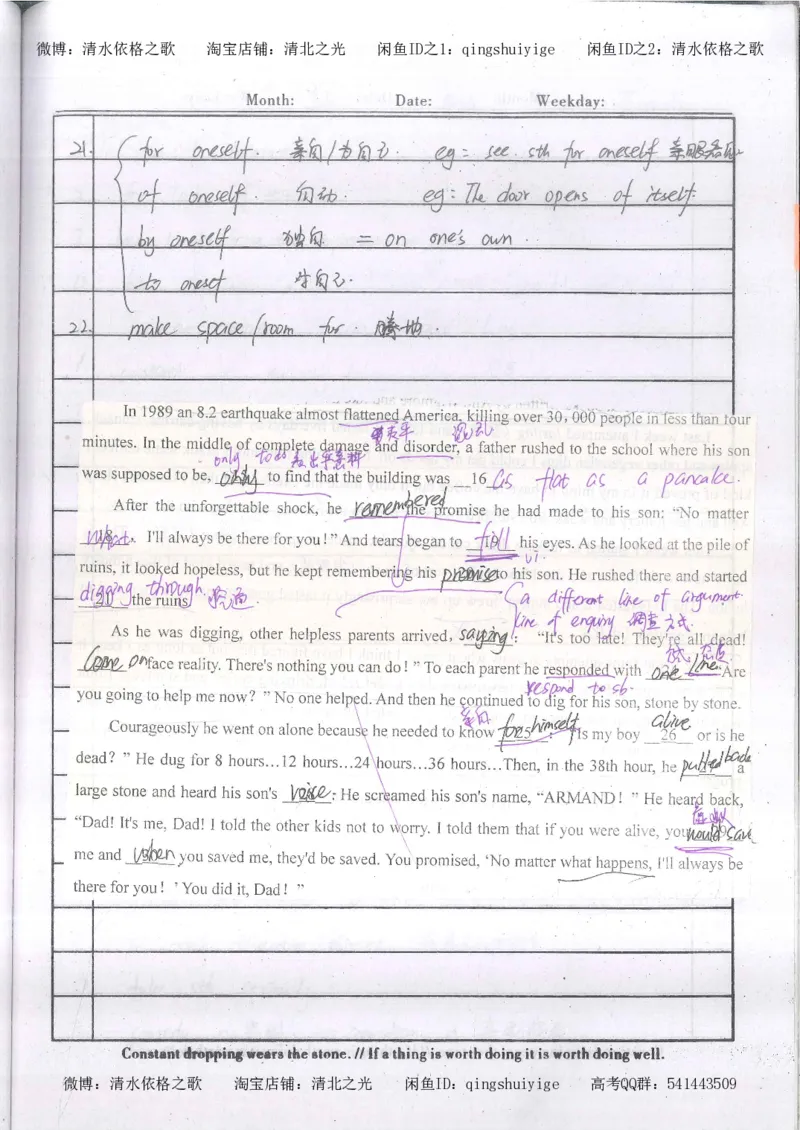 微博：清水依格之歌 淘宝店铺：清北之光 闲鱼ID之1：qingshuiyige 闲鱼ID之2：清水依格之歌
Month: Date: Weekday:
21. for oneself. 亲自/为自己. eg: see sth for oneself 亲眼看见
of oneself. 自动. eg: The door opens of itself.
by oneself 独自 = on one's own.
to oneself 对自己.
22. make space/room for. 腾地.
In 1989 an 8.2 earthquake almost flattened America, killing over 30,000 people in less than four
minutes. In the middle of complete damage and disorder, a father rushed to the school where his son
only to do 表出乎意料
was supposed to be, only to find that the building was 16 as flat as a pancake.
After the unforgettable shock, he remembered the promise he had made to his son: “No matter
what, I'll always be there for you!” And tears began to fill his eyes. As he looked at the pile of
vi.
ruins, it looked hopeless, but he kept remembering his promise to his son. He rushed there and started
digging through the ruins. 挖通
a different line of argument
line of enquiry 调查方式
As he was digging, other helpless parents arrived, saying: “It's too late! They're all dead!
Come on, face reality. There's nothing you can do!” To each parent he responded with one line: Are
respond to sb.
you going to help me now?” No one helped. And then he continued to dig for his son, stone by stone.
亲自
Courageously he went on alone because he needed to know for himself: “Is my boy 26 alive or is he
dead?” He dug for 8 hours…12 hours…24 hours…36 hours…Then, in the 38th hour, he pulled back a
large stone and heard his son's voice. He screamed his son's name, “ARMAND!” He heard back,
“Dad! It's me, Dad! I told the other kids not to worry. I told them that if you were alive, you would save
me and when you saved me, they'd be saved. You promised, ‘No matter what happens, I'll always be
there for you!’ You did it, Dad!”
Constant dropping wears the stone. // If a thing is worth doing it is worth doing well.
微博：清水依格之歌 淘宝店铺：清北之光 闲鱼ID：qingshuiyige 高考QQ群：541443509